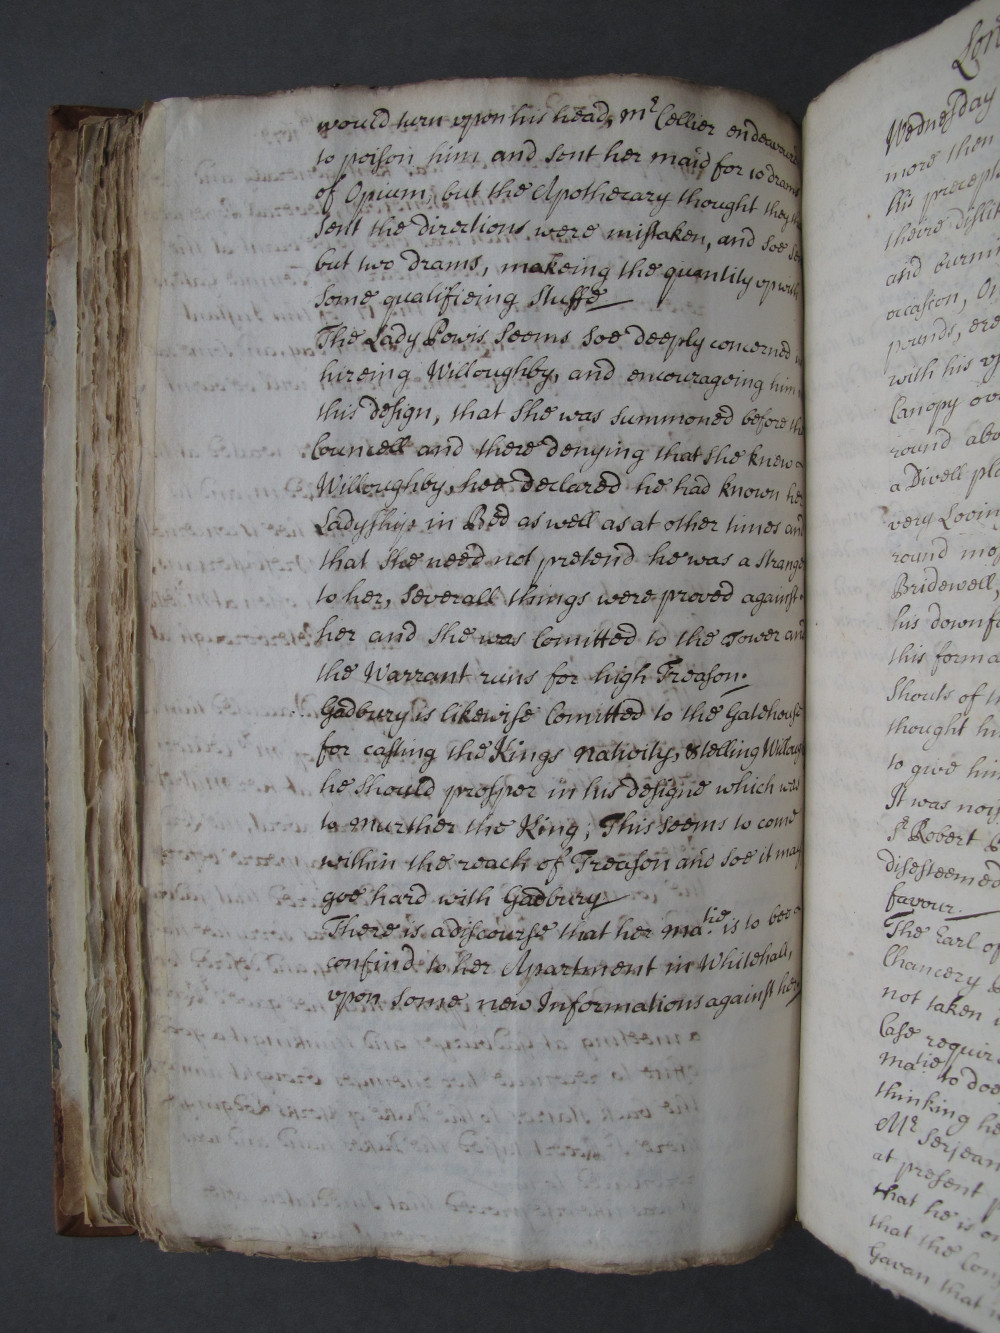 would turn upon his head, mr Cellier endeavour
to poison him and sent her maid for 10 drams
of Opium, but the Apothecary thought they
sent the directions were mistaken, and soe
but two drams, makeing the quantity up with
some qualifieing stuffe
The Lady Powis seems soe deeply concerned
hireing Willoughby, and encourageing him
this design, that she was summoned before the
Councell and there denying that she knew
Willoughby, hee declared he had known her
Ladyship in Bed as well as at other times and
that she need not pretend he was a strange
to her, Severall things were proved against
her and she was Comitted to the Tower and
the Warrant runs for high Treason.
Gadbury is likewise Comitted to the Gatehouse
for casting the Kings nativity, & telling Willough
he should prosper in his designe which was
to murther the King; This seems to come
within the reach of Treason and soe it may
goe hard with Gadbury
There is a discourse that her matie is to bee
confind to her Apartment in Whitehall,
upon some new Informations against her
Lon
Wednesday
more then
his precept
theire
and burni
occasion, O
pounds, ere
with his
Canopy ov
round abo
a Divell pla
very Lovin
round
Bridewell,
his downfa
this forma
Shouts of
thought hi
to give him
It was
Sr Robert
disesteemed
favour.
The Earl of
Chancery
not taken
Case requir
matie to doe
thinking he
Mr Serjean
at present
that he is
that the Con
Gavan that